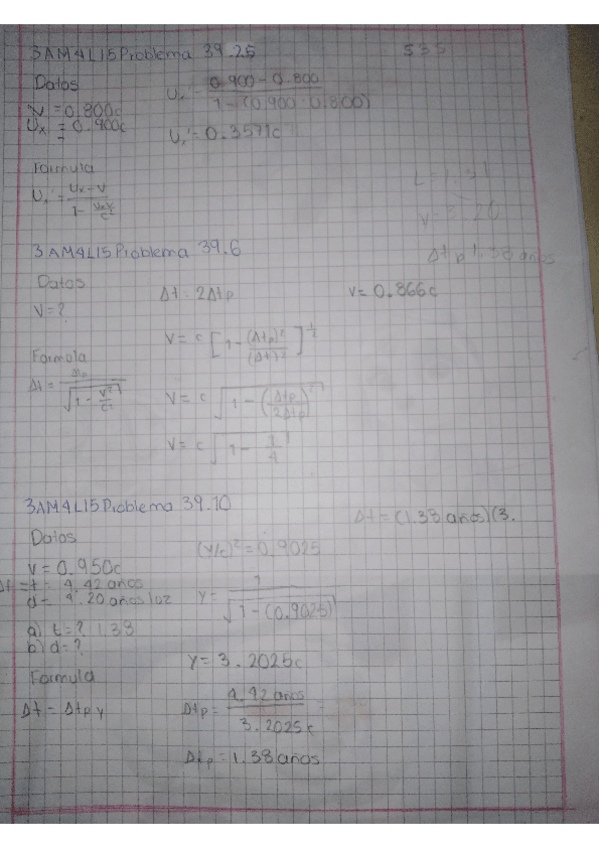 3AM4L15 Problema 39.25
535
Datos
V = 0.800c
Ux = 0.900c
Ux' = 0.900 - 0.800 / 1 - (0.900 · 0.800)
Ux' = 0.3571c
Formula
Ux' = Ux - V / 1 - UxV/c²
3AM4L15 Problema 39.6
Datos
V = ?
Δt = 2Δtp
V = 0.866c
V = c [1 - (Δtp)²/(Δt)²]^1/2
Formula
Δt = Δtp / √1 - V²/c²
V = c √1 - (Δtp/2Δtp)²
V = c √1 - 1/4
Δtp 1.38 años
3AM4L15 Problema 39.10
Δt = (1.38 años)(3.
Datos
V = 0.950c
Δt = t = 4.42 años
d = 4.20 años luz
a) t = ? 1.38
b) d = ?
(V/c)² = 0.9025
γ = 1 / √1 - (0.9025)
γ = 3.2025c
Formula
Δt = Δtp γ
Δtp = 4.42 años / 3.2025c
Δtp = 1.38 años